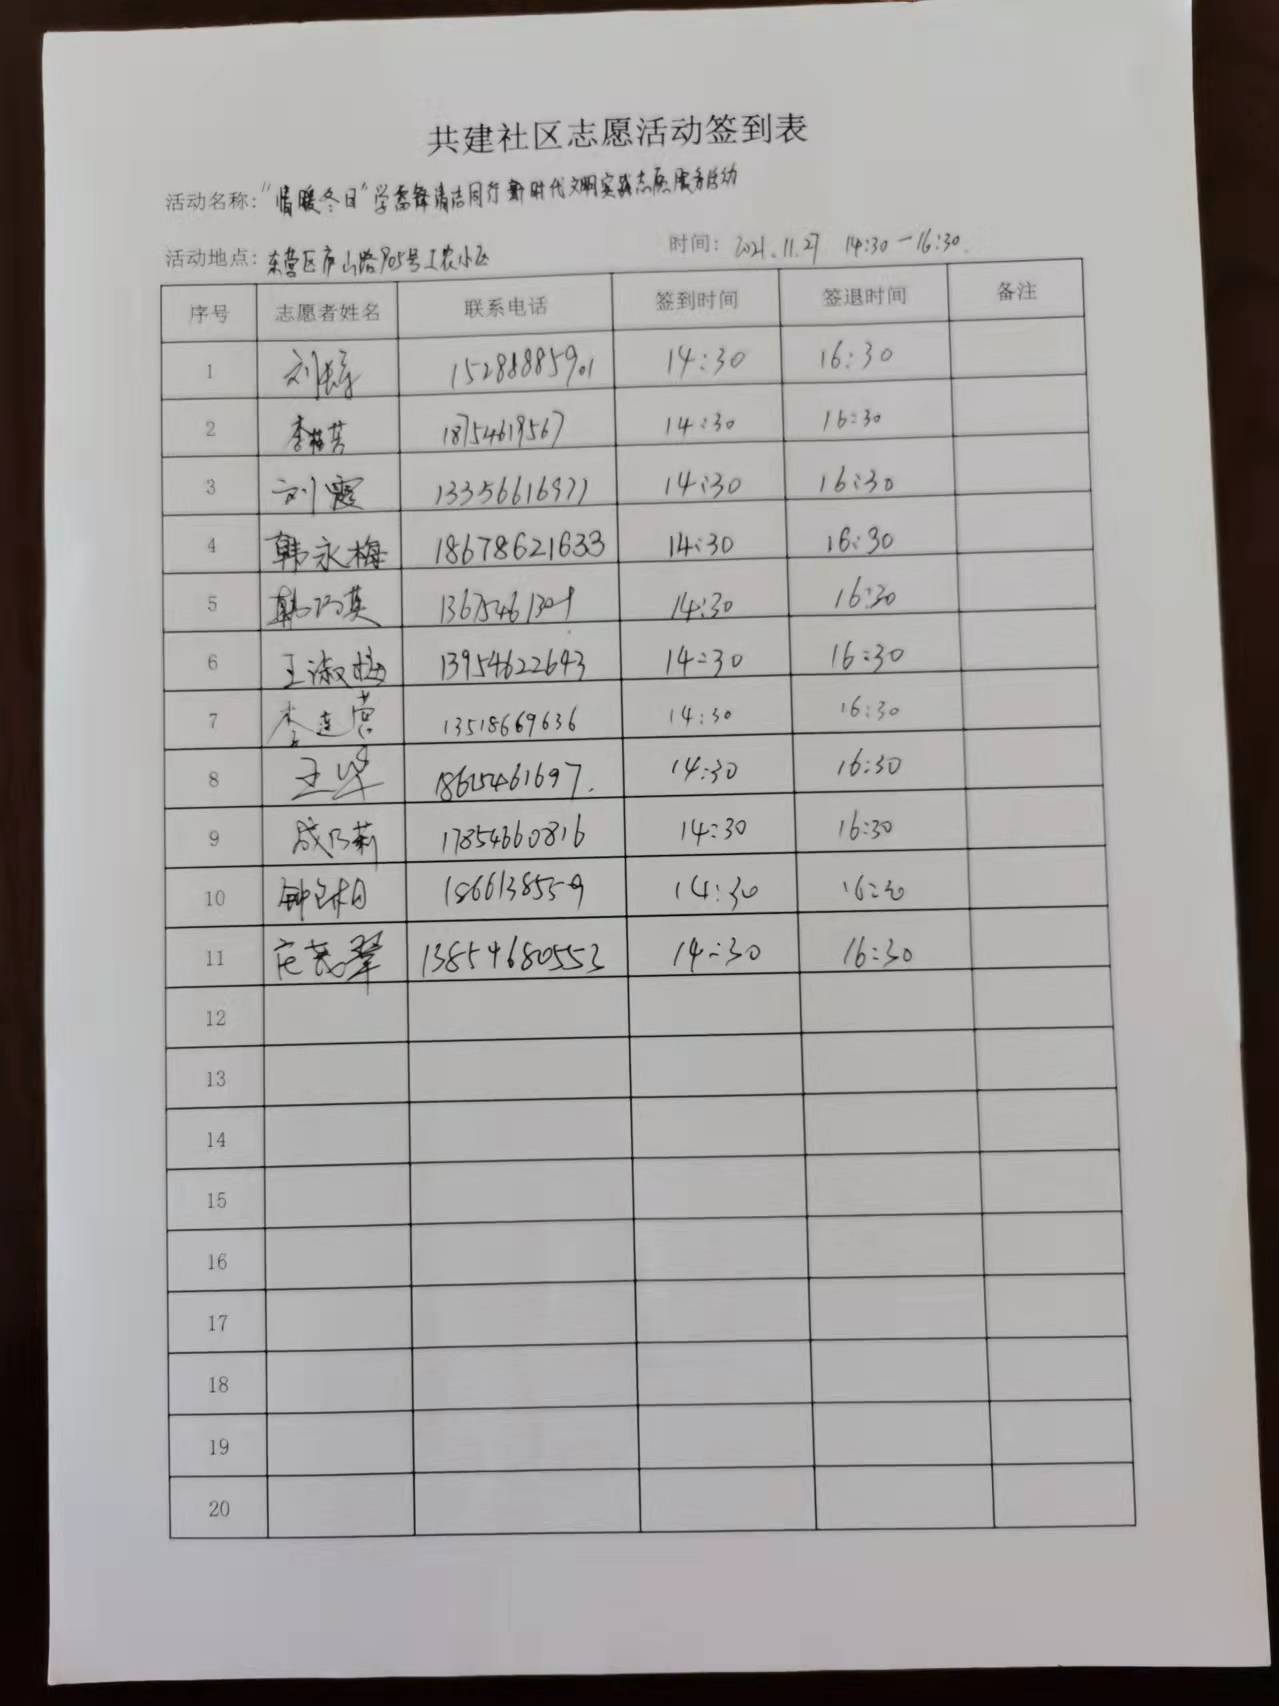 共建社区志愿活动签到表
活动名称："情暖冬日"学雷锋清洁同行新时代文明实践志愿服务活动
活动地点：东营区庐山路905号工农小区 时间：2021.11.27 14:30—16:30.
序号 志愿者姓名 联系电话 签到时间 签退时间 备注
1 15288885901 14:30 16:30
2 李梅芳 18754619567 14:30 16:30
3 刘霞 13356616971 14:30 16:30
4 韩永梅 18678621633 14:30 16:30
5 韩巧英 14:30 16:30
6 王淑梅 13954622643 14:30 16:30
7 李连营 13518669636 14:30 16:30
8 王 14:30 16:30
9 成乃莉 17854660816 14:30 16:30
10 14:30 16:30
11 13854680553 14:30 16:30
12
13
14
15
16
17
18
19
20